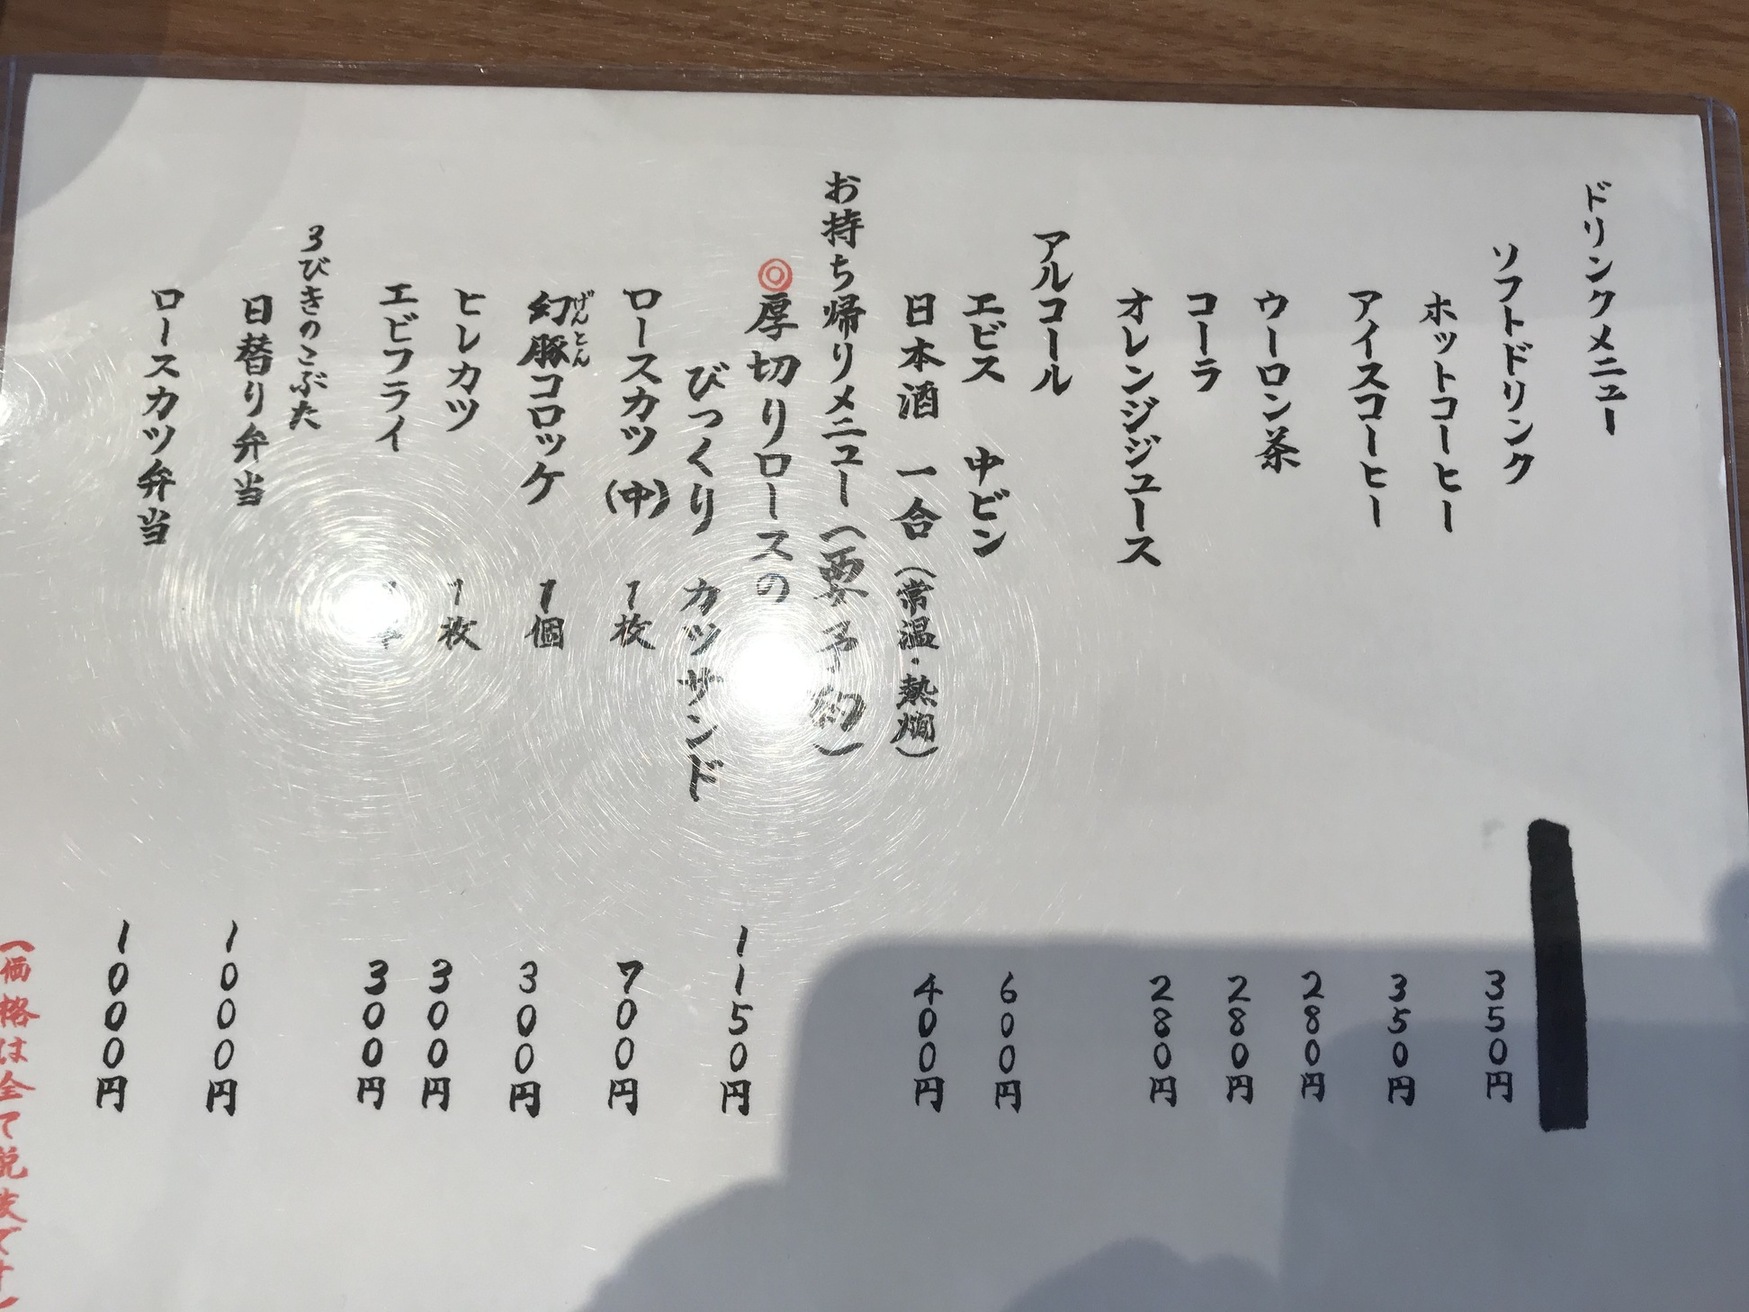 ドリンクメニュー
ソフトドリンク
ホットコーヒー 350円
アイスコーヒー 350円
ウーロン茶 280円
コーラ 280円
オレンジジュース 280円
アルコール
エビス 中ビン 600円
日本酒 一合 (常温・熱燗) 400円
お持ち帰りメニュー (要予約)
◎厚切りロースの
びっくり カツサンド 1150円
ロースカツ (中) 1枚 700円
幻豚コロッケ 1個 300円
げんとん
ヒレカツ 1枚 300円
エビフライ 300円
3びきのこぶた
日替り弁当 1000円
ロースカツ弁当 1000円
(価格は全て税抜です)